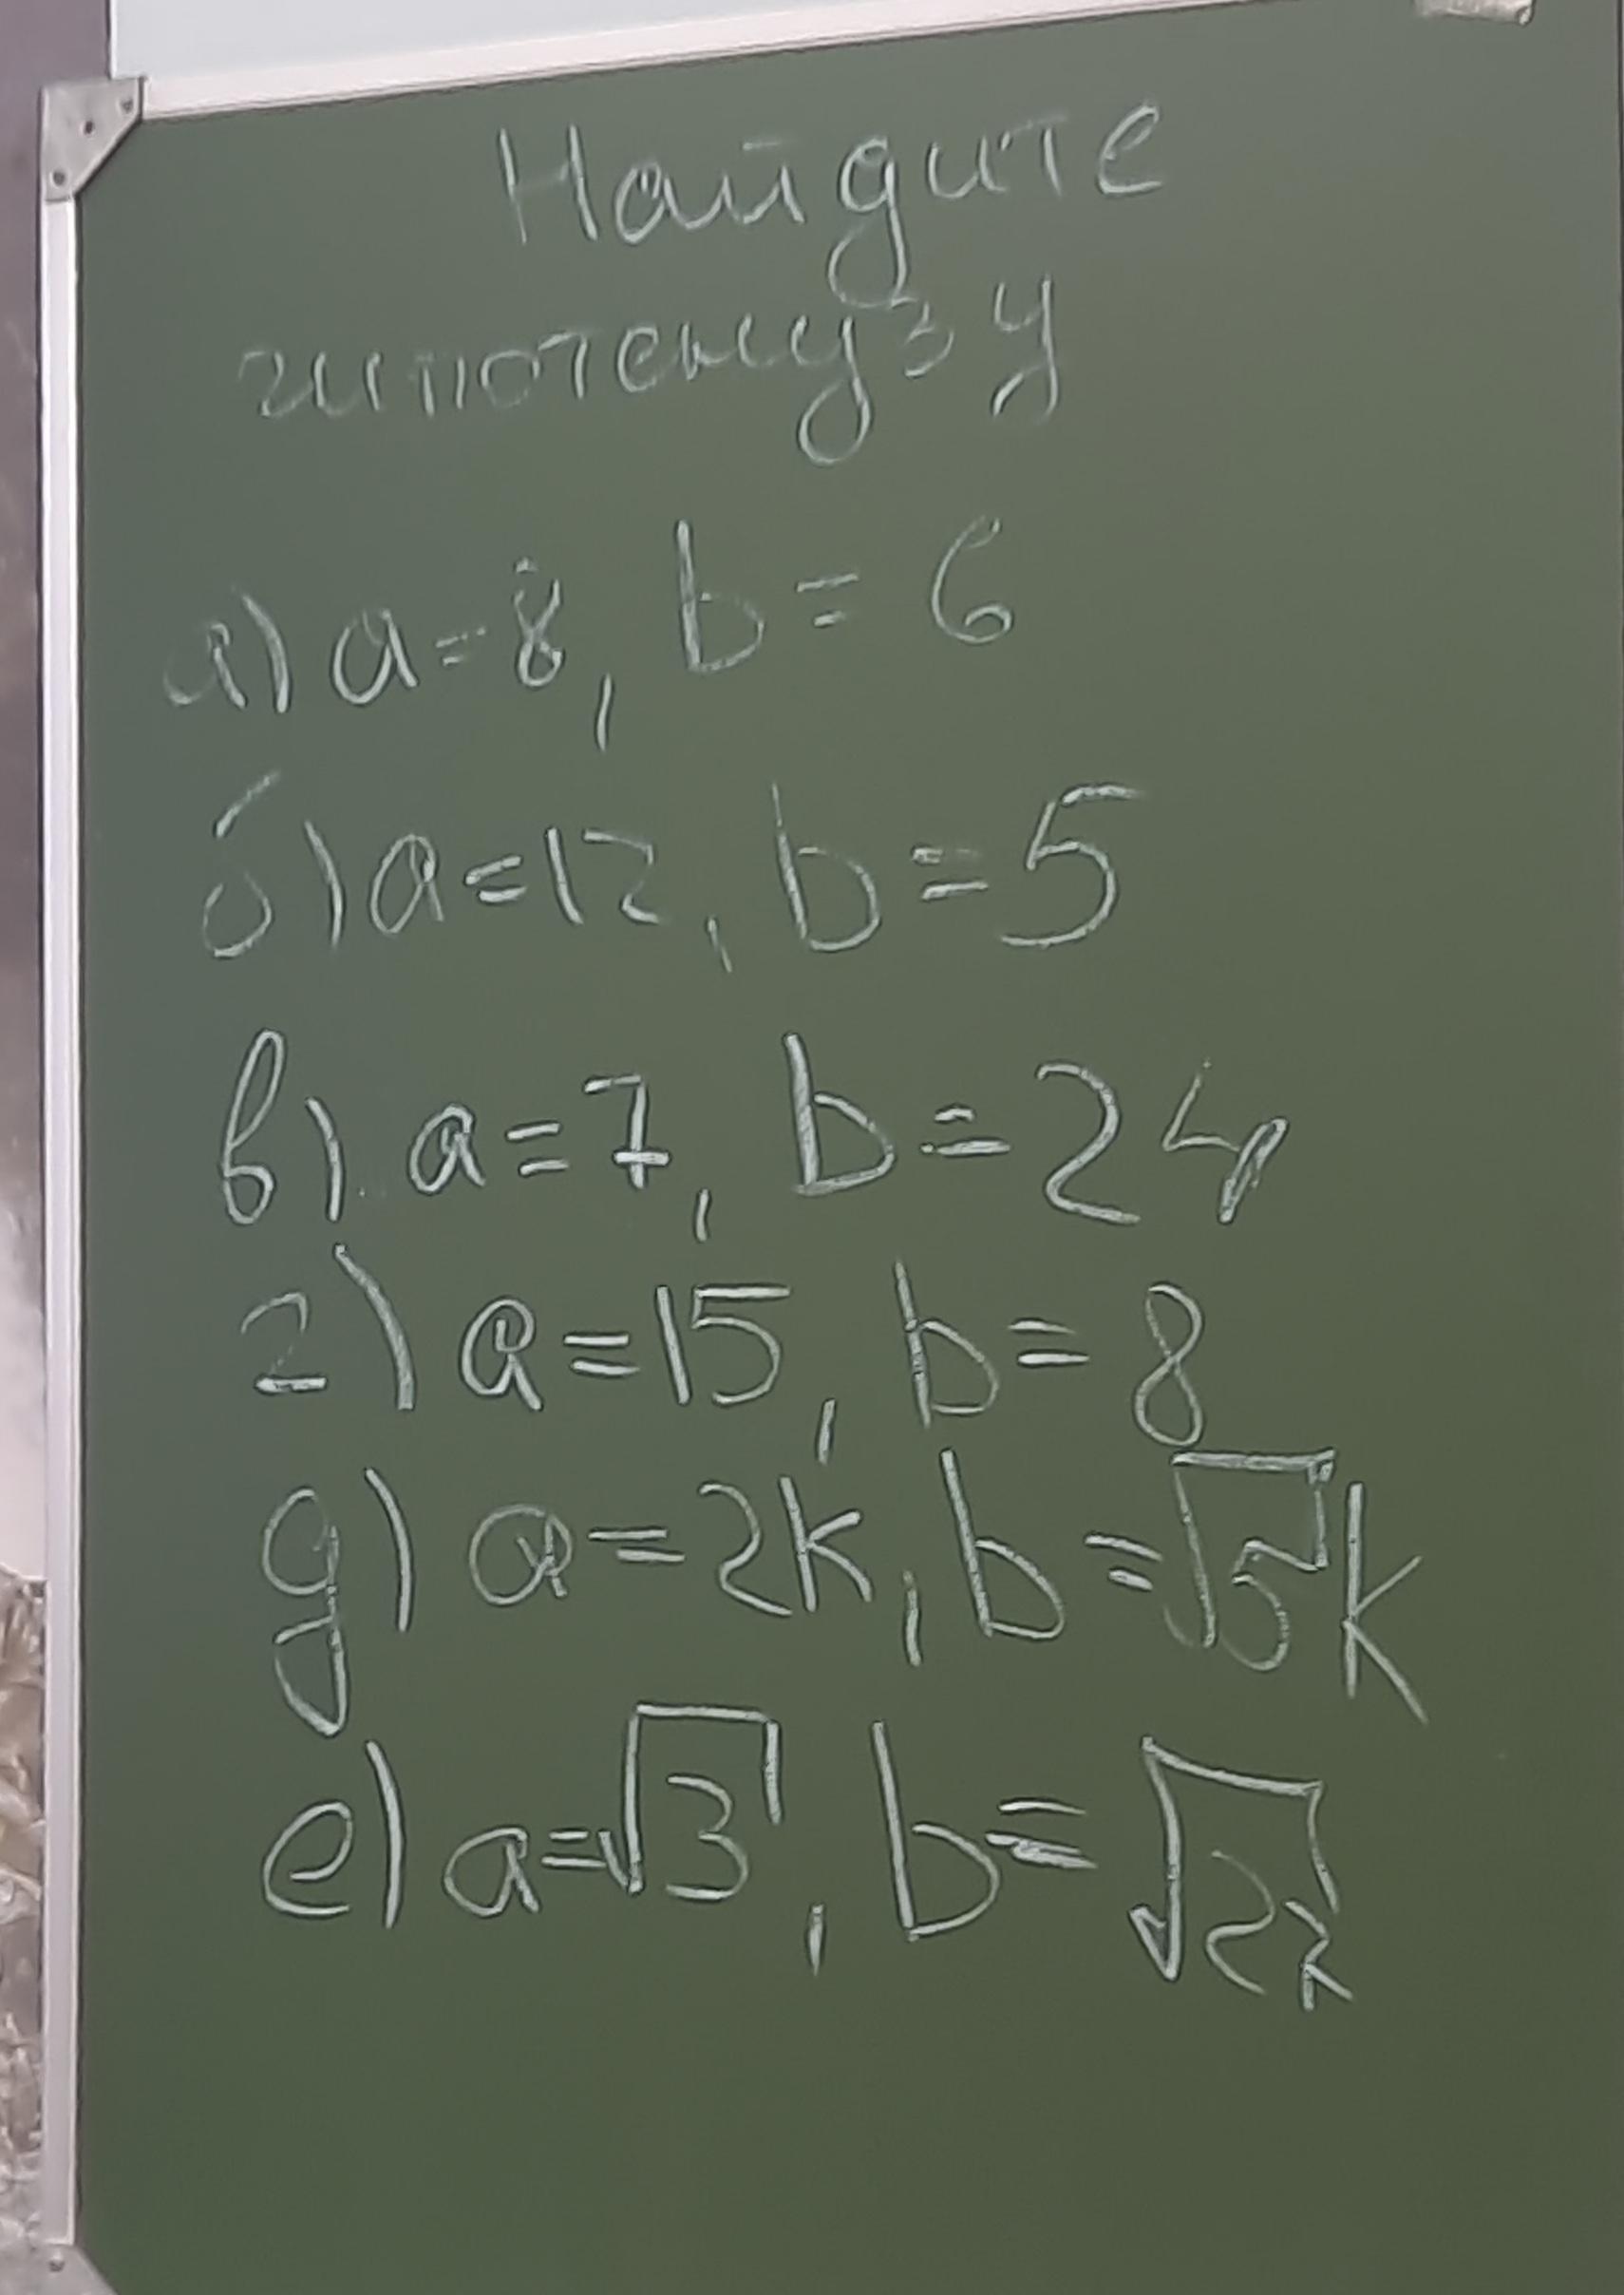 Найдите
гипотенузу
а) a=8, b=6
б) a=12, b=5
в) a=7, b=24
г) a=15, b=8
д) a=2k, b=√5k
е) a=√3, b=√22